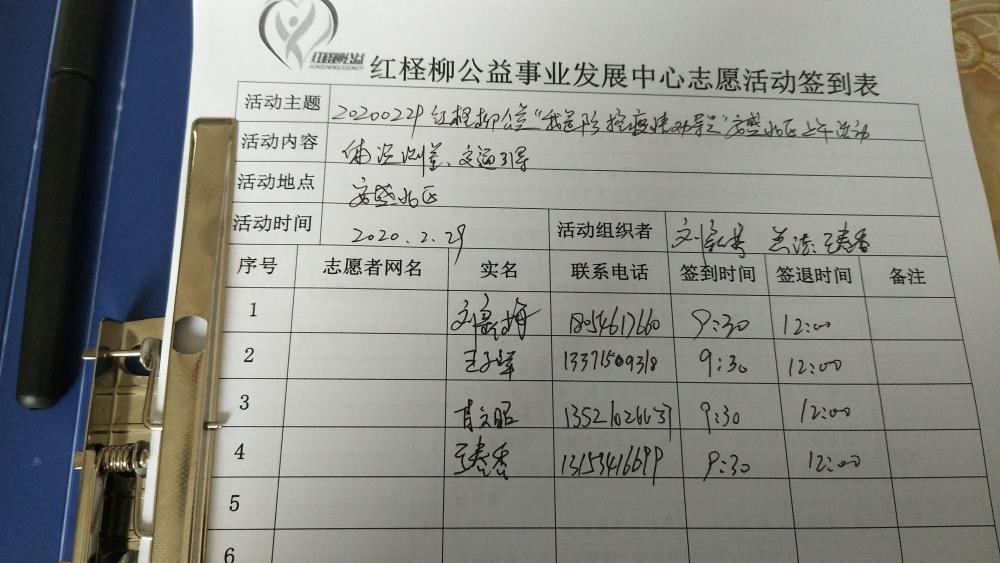 红柽柳公益
红柽柳公益事业发展中心志愿活动签到表
活动主题 20200229红柽柳公益“我是防控疫情劝导员”安盛北区上午活动
活动内容 体温测量、交通引导
活动地点 安盛北区
活动时间 2020.2.29 活动组织者
序号 志愿者网名 实名 联系电话 签到时间 签退时间 备注
1 18054617660 9:30 12:00
2 13371509318 9:30 12:00
3 9:30 12:00
4 王春香 13153416699 9:30 12:00
5
6